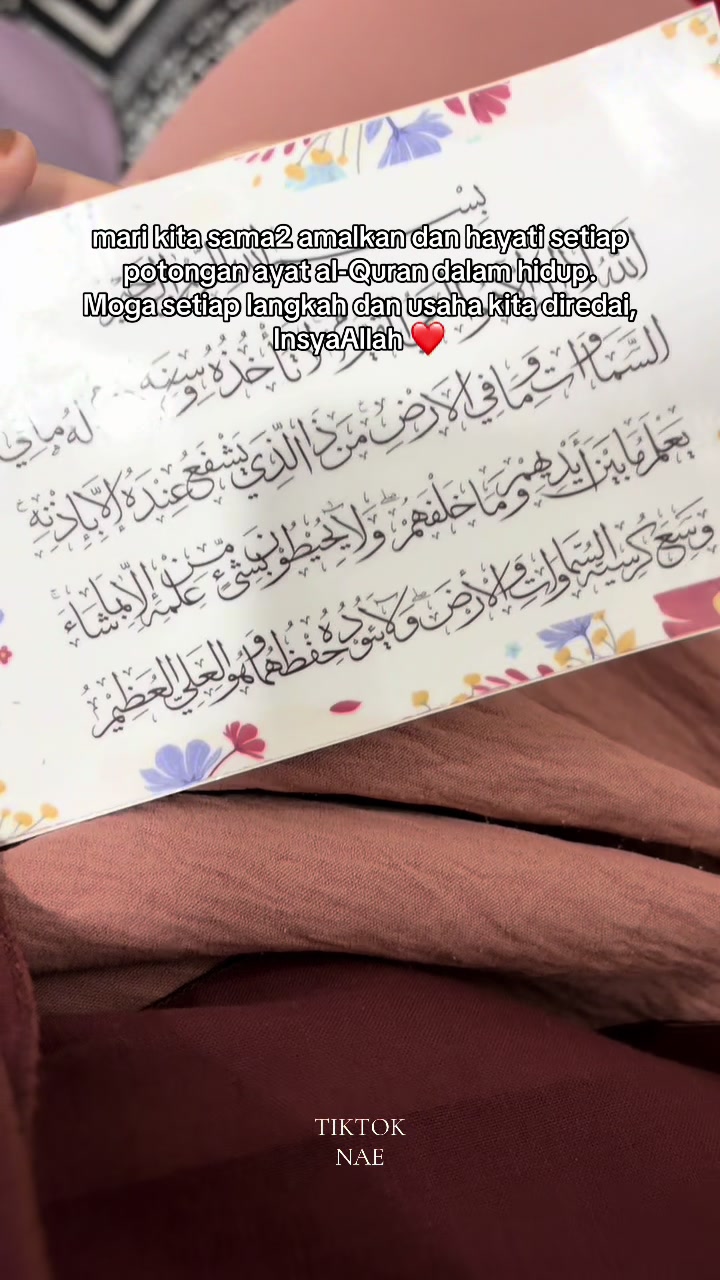 بِسْ
mari kita sama2 amalkan dan hayati setiap
potongan ayat al-Quran dalam hidup.
Moga setiap langkah dan usaha kita diredai,
InsyaAllah ❤️
اللهُ
تَأْخُذُهُ وَسِنَةٌ لَهُ مَا فِي
السَّمَاوَاتِ وَمَا فِي الْأَرْضِ مَنْ ذَا الَّذِي يَشْفَعُ عِنْدَهُ إِلَّا بِإِذْنِهِ
يَعْلَمُ مَا بَيْنَ أَيْدِيهِمْ وَمَا خَلْفَهُمْ وَلَا يُحِيطُونَ بِشَيْءٍ مِّنْ عِلْمِهِ إِلَّا بِمَا شَاءَ
وَسِعَ كُرْسِيُّهُ السَّمَاوَاتِ وَالْأَرْضَ وَلَا يَئُودُهُ حِفْظُهُمَا وَهُوَ الْعَلِيُّ الْعَظِيمُ
TIKTOK
NAE